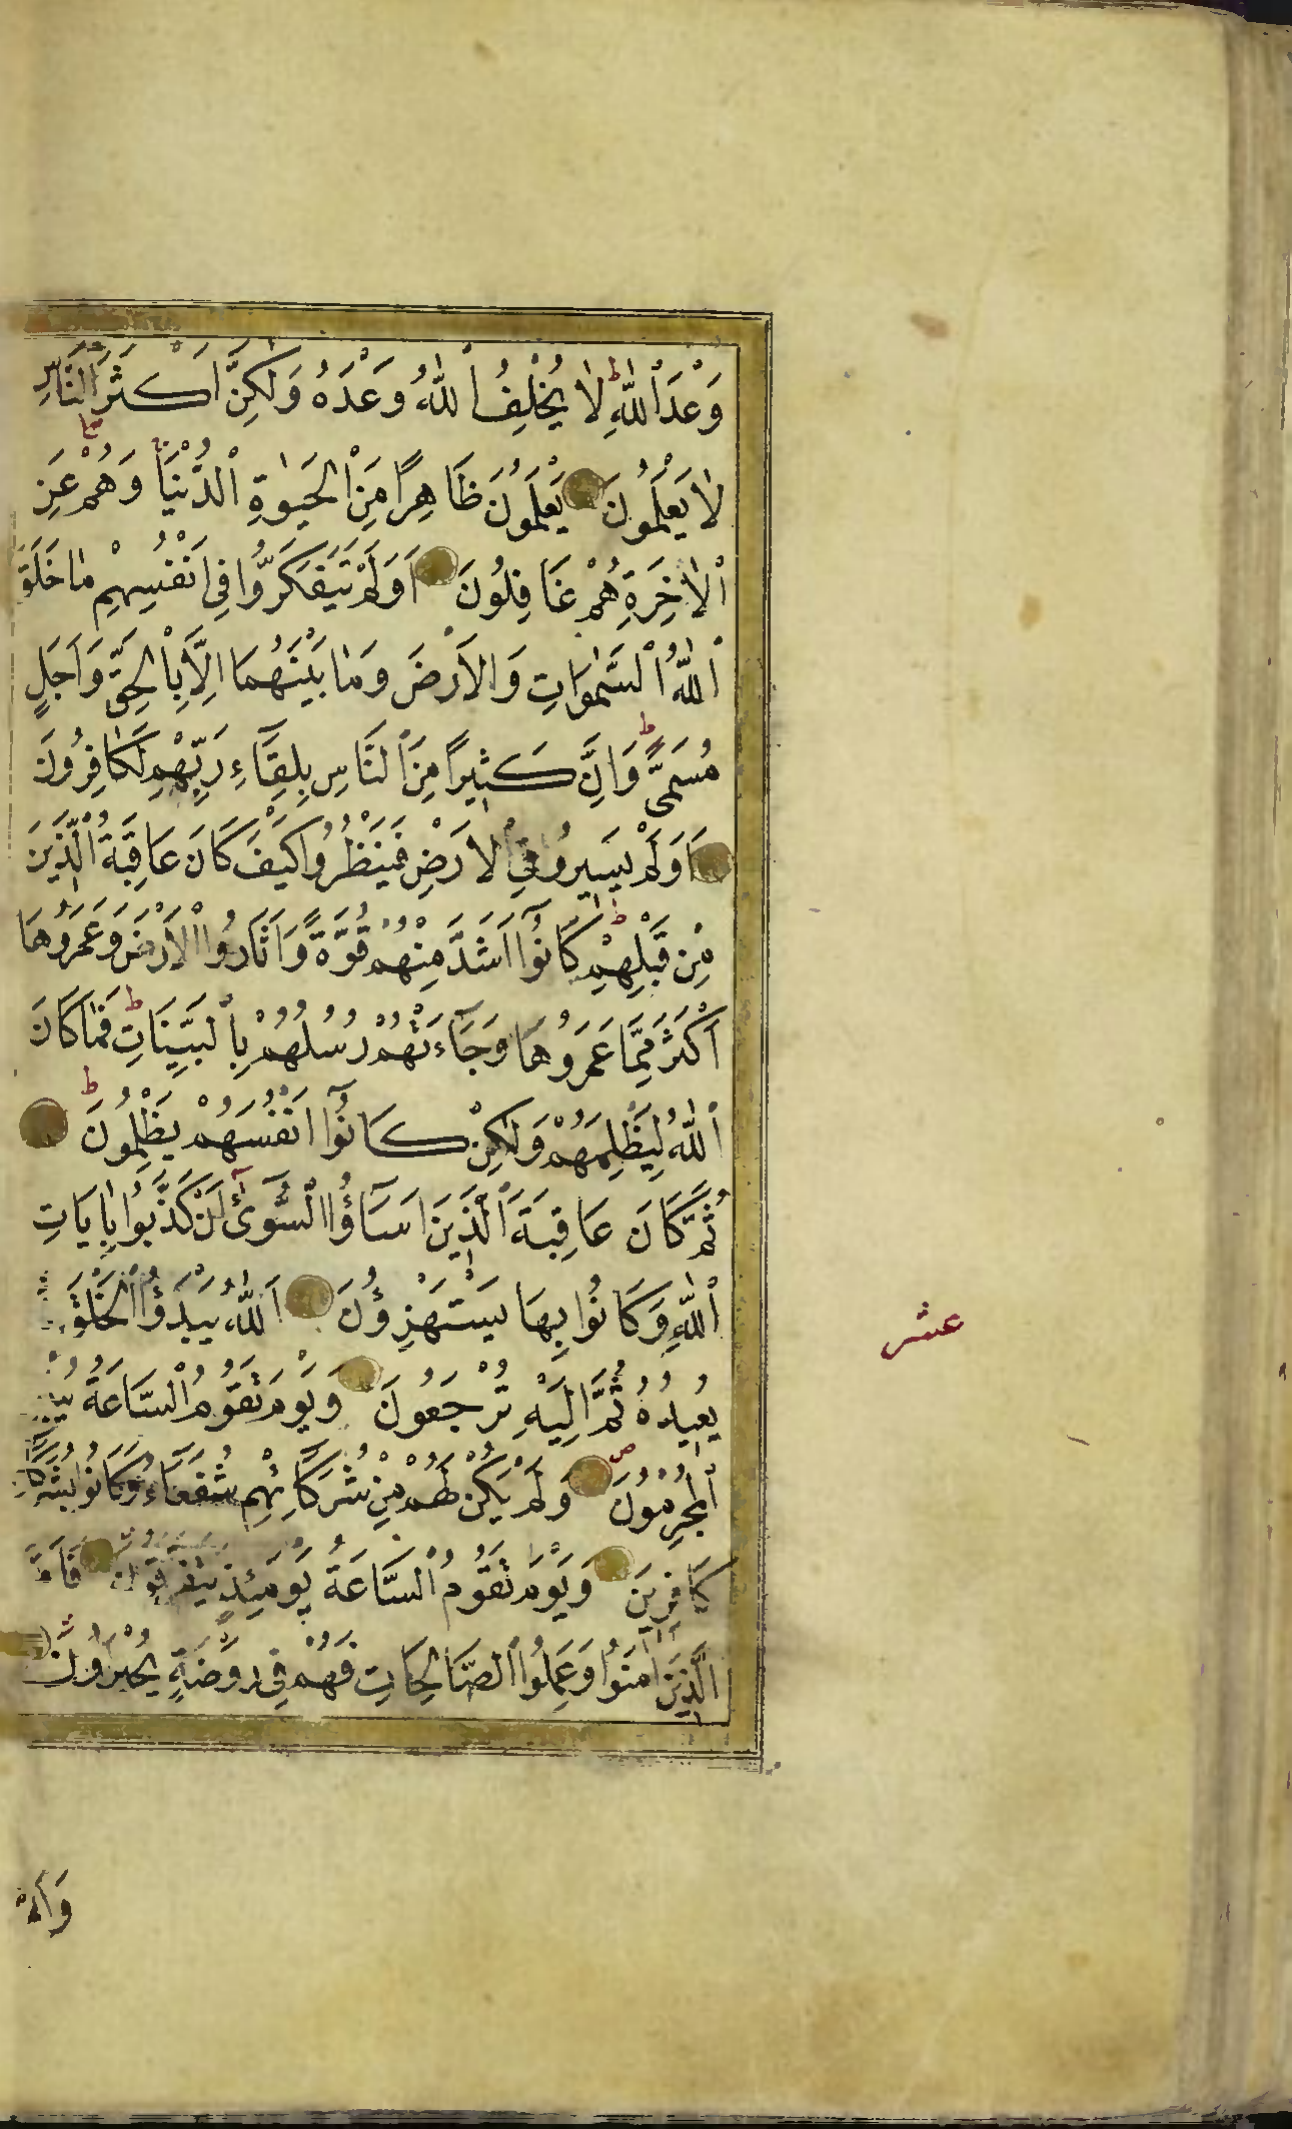 وَعْدَ ٱللّٰهِ لَا يُخْلِفُ ٱللّٰهُ وَعْدَهُ وَلٰكِنَّ اَكْثَرَ ٱلنَّاسِ
لَا يَعْلَمُونَ يَعْلَمُونَ ظَاهِرًا مِنَ ٱلْحَيٰوةِ ٱلدُّنْيَا وَهُمْ عَنِ
ٱلْاٰخِرَةِ هُمْ غَافِلُونَ اَوَلَمْ يَتَفَكَّرُوا فِى اَنْفُسِهِمْ مَا خَلَقَ
ٱللّٰهُ ٱلسَّمٰوَاتِ وَالْاَرْضَ وَمَا بَيْنَهُمَا اِلَّا بِٱلْحَقِّ وَاَجَلٍ
مُسَمًّى وَاِنَّ كَثِيرًا مِنَ ٱلنَّاسِ بِلِقَاءِ رَبِّهِمْ لَكَافِرُونَ
اَوَلَمْ يَسِيرُوا فِى ٱلْاَرْضِ فَيَنْظُرُوا كَيْفَ كَانَ عَاقِبَةُ ٱلَّذِينَ
مِنْ قَبْلِهِمْ كَانُوٓا اَشَدَّ مِنْهُمْ قُوَّةً وَاَثَارُوا ٱلْاَرْضَ وَعَمَرُوهَا
اَكْثَرَ مِمَّا عَمَرُوهَا وَجَآءَتْهُمْ رُسُلُهُمْ بِٱلْبَيِّنَاتِ فَمَا كَانَ
ٱللّٰهُ لِيَظْلِمَهُمْ وَلٰكِنْ كَانُوٓا اَنْفُسَهُمْ يَظْلِمُونَ
ثُمَّ كَانَ عَاقِبَةَ ٱلَّذِينَ اَسَآؤُا ٱلسُّوٓأٰى اَنْ كَذَّبُوا بِاٰيَاتِ
ٱللّٰهِ وَكَانُوا بِهَا يَسْتَهْزِؤُنَ اَللّٰهُ يَبْدَؤُا ٱلْخَلْقَ
يُعِيدُهُ ثُمَّ اِلَيْهِ تُرْجَعُونَ وَيَوْمَ تَقُومُ ٱلسَّاعَةُ
ٱلْمُجْرِمُونَ وَلَمْ يَكُنْ لَهُمْ مِنْ شُرَكَائِهِمْ شُفَعَاءُ وَكَانُوا
كَافِرِينَ وَيَوْمَ تَقُومُ ٱلسَّاعَةُ يَوْمَئِذٍ يَتَفَرَّقُونَ فَاَمَّا
ٱلَّذِينَ اٰمَنُوا وَعَمِلُوا ٱلصَّالِحَاتِ فَهُمْ فِى رَوْضَةٍ يُحْبَرُونَ
عشر